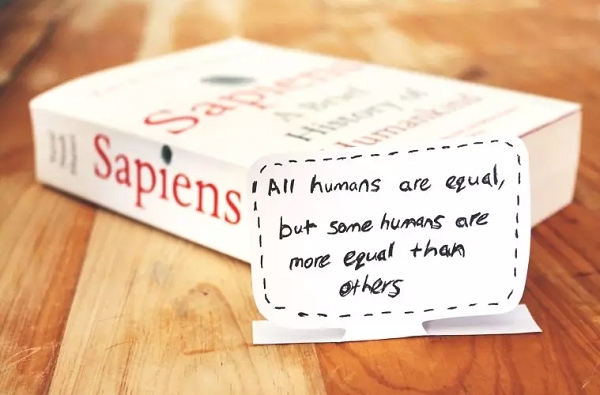 Sapiens
A Brief
History of
Humankind
Sapiens
All humans are equal,
but some humans are
more equal than
others